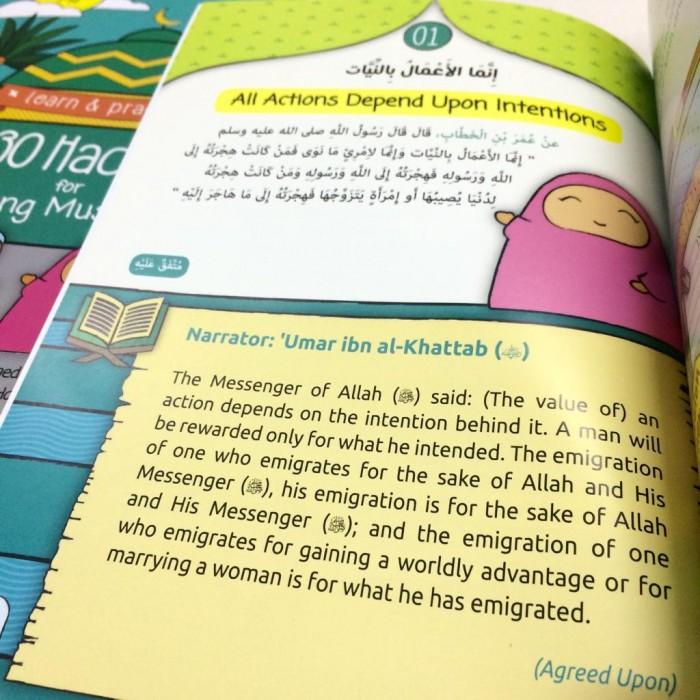 learn & pra
30 Had
for
ng Mus
01
إِنَّمَا الأَعْمَالُ بِالنِّيَّاتِ
All Actions Depend Upon Intentions
عَنْ عُمَرَ بْنِ الْخَطَّابِ، قَالَ قَالَ رَسُولُ اللَّهِ صلى الله عليه وسلم
" إِنَّمَا الأَعْمَالُ بِالنِّيَّاتِ وَإِنَّمَا لاِمْرِئٍ مَا نَوَى فَمَنْ كَانَتْ هِجْرَتُهُ إِلَى
اللَّهِ وَرَسُولِهِ فَهِجْرَتُهُ إِلَى اللَّهِ وَرَسُولِهِ وَمَنْ كَانَتْ هِجْرَتُهُ
لِدُنْيَا يُصِيبُهَا أَوِ امْرَأَةٍ يَتَزَوَّجُهَا فَهِجْرَتُهُ إِلَى مَا هَاجَرَ إِلَيْهِ "
مُتَّفَقٌ عَلَيْهِ
Narrator: 'Umar ibn al-Khattab ()
The Messenger of Allah (ﷺ) said: (The value of) an
action depends on the intention behind it. A man will
be rewarded only for what he intended. The emigration
of one who emigrates for the sake of Allah and His
Messenger (ﷺ), his emigration is for the sake of Allah
and His Messenger (ﷺ); and the emigration of one
who emigrates for gaining a worldly advantage or for
marrying a woman is for what he has emigrated.
(Agreed Upon)